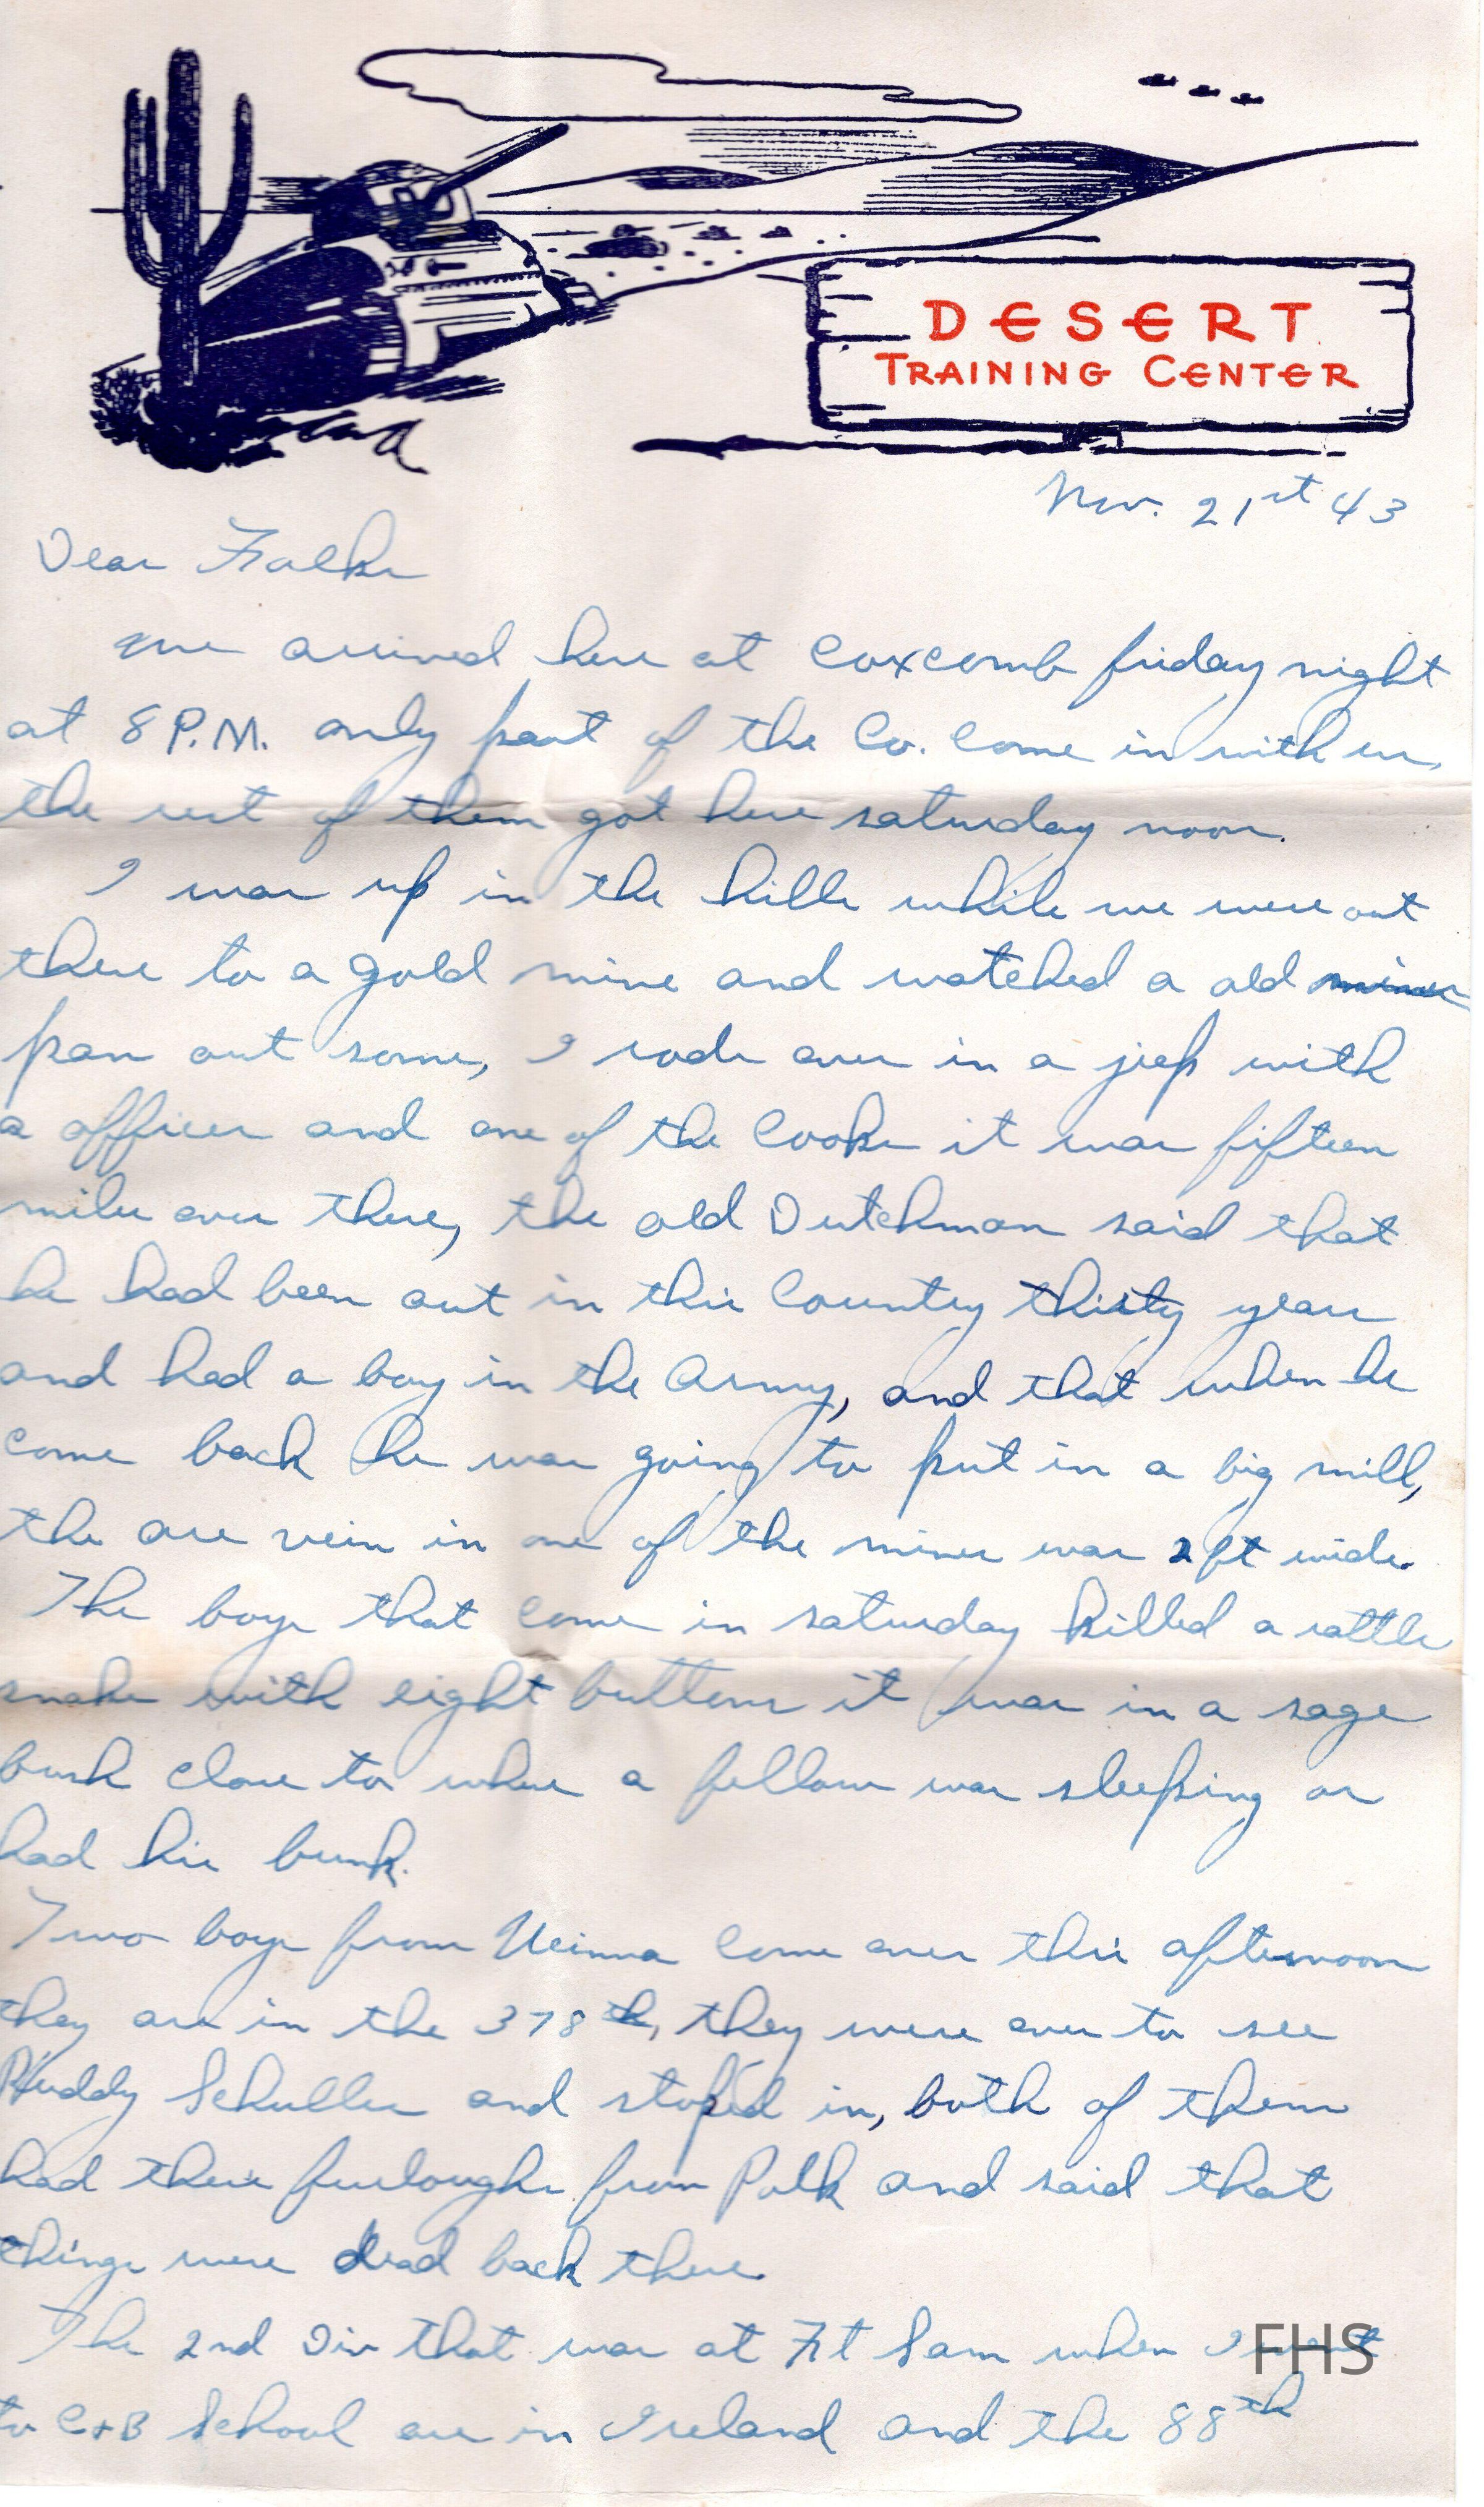 DESERT
TRAINING CENTER
Nov. 21st 43
Dear Folks
we arrived here at Coxcomb friday night
at 8 P.M. only part of the Co. Come in with us,
the rest of them got here saturday noon.
I was up in the hills while we were out
there to a gold mine and watched a old miner
pan out some, I rode over in a jeep with
a officer and one of the Cooks it was fifteen
miles over there, the old Dutchman said that
he had been out in this Country thirty years
and had a boy in the Army, and that when he
come back he was going to put in a big mill,
the ore vein in one of the mines was 2 ft wide.
The boys that come in saturday killed a rattle
snake with eight buttons it was in a sage
bush close to where a fellow was sleeping or
had his bunk.
Two boys from come over this afternoon
they are in the 378th, they were over to see
Buddy Schuller and stoped in, both of them
had their furloughs from Polk and said that
things were dead back there.
The 2nd Div that was at Ft Sam when I went
to C+B School are in Ireland and the 88th
FHS